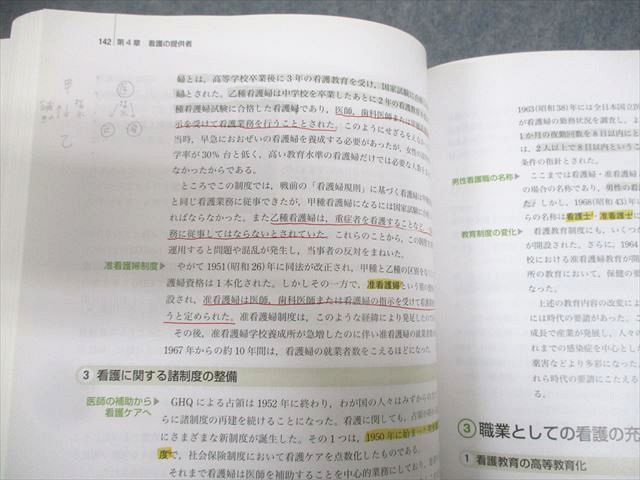 142 第4章 看護の提供者
甲
乙
婦とは，高等学校卒業後に3年の看護教育を受け，国家試験に
婦とされた。乙種看護婦は中学校を卒業したあとに2年の看護教育を
種看護婦試験に合格した看護婦であり，医師，歯科医師または
示を受けて看護業務を行うこととされた。このようにせざるをえな
当時，早急におおぜいの看護婦を養成する必要があったが，女性の
学率が30％台と低く，高い教育水準の看護婦だけでは必要な人数を
なかったからである。
ところでこの制度では，戦前の「看護婦規則」に基づく看護婦は
と同じ看護業務に従事できたが，甲種看護婦になるには国家試験に
ればならなかった。また乙種看護婦は，重症者を看護すること
務に従事してはならないとされていた。これらのことから，この制度
運用すると問題や混乱が発生し，当事者の反対をまねいた。
准看護婦制度
やがて1951(昭和26)年に同法が改正され，甲種と乙種の区別を
護婦資格は1本化された。しかしその一方で，准看護婦という
設され，准看護婦は医師，歯科医師または看護婦の指示を受けて看護
うと定められた。准看護婦制度は，このような経緯により発足した
その後，准看護婦学校養成所が急増したのに伴い准看護婦の就業者
1967年からの約10年間は，看護婦の就業者数をこえるほどになった。
3 看護に関する諸制度の整備
医師の補助から
看護ケアへ
GHQによる占領は1952年に終わり，わが国の人々はみずから
らに諸制度の再建を続けることになった。看護に関しても，占領
にさまざまな新制度が誕生した。その1つは，1950年に始まった
度で，社会保険制度において看護ケアを点数化したものである。
それまで看護婦は医師を補助することを中心的業務にしており，
1963(昭和38)年には全日本国
が看護職の勤務状況を調査し，
1か月の夜勤回数を8日以内に
は，2人以上で8日以内という
条件の指針とされた。
男性看護職の名称
ここまでは看護婦・准看護婦
の場合の名称であり，男性の
た。しかし，1968(昭和43)年
らの名称は看護士・准看護士
教育制度の変化
看護教育制度にも，いくつか
が開設された。さらに，1964
校における准看護婦教育が開
所の教育において，保健の
なった。
上述の教育内容の改変によ
には時代の要請があった。
成長で産業が発展し，人々の
れまでの感染症を中心とした
薬害などより多彩になった。
れら時代の要請にこたえる
る。
3 職業としての看護の充
1 看護教育の高等教育化